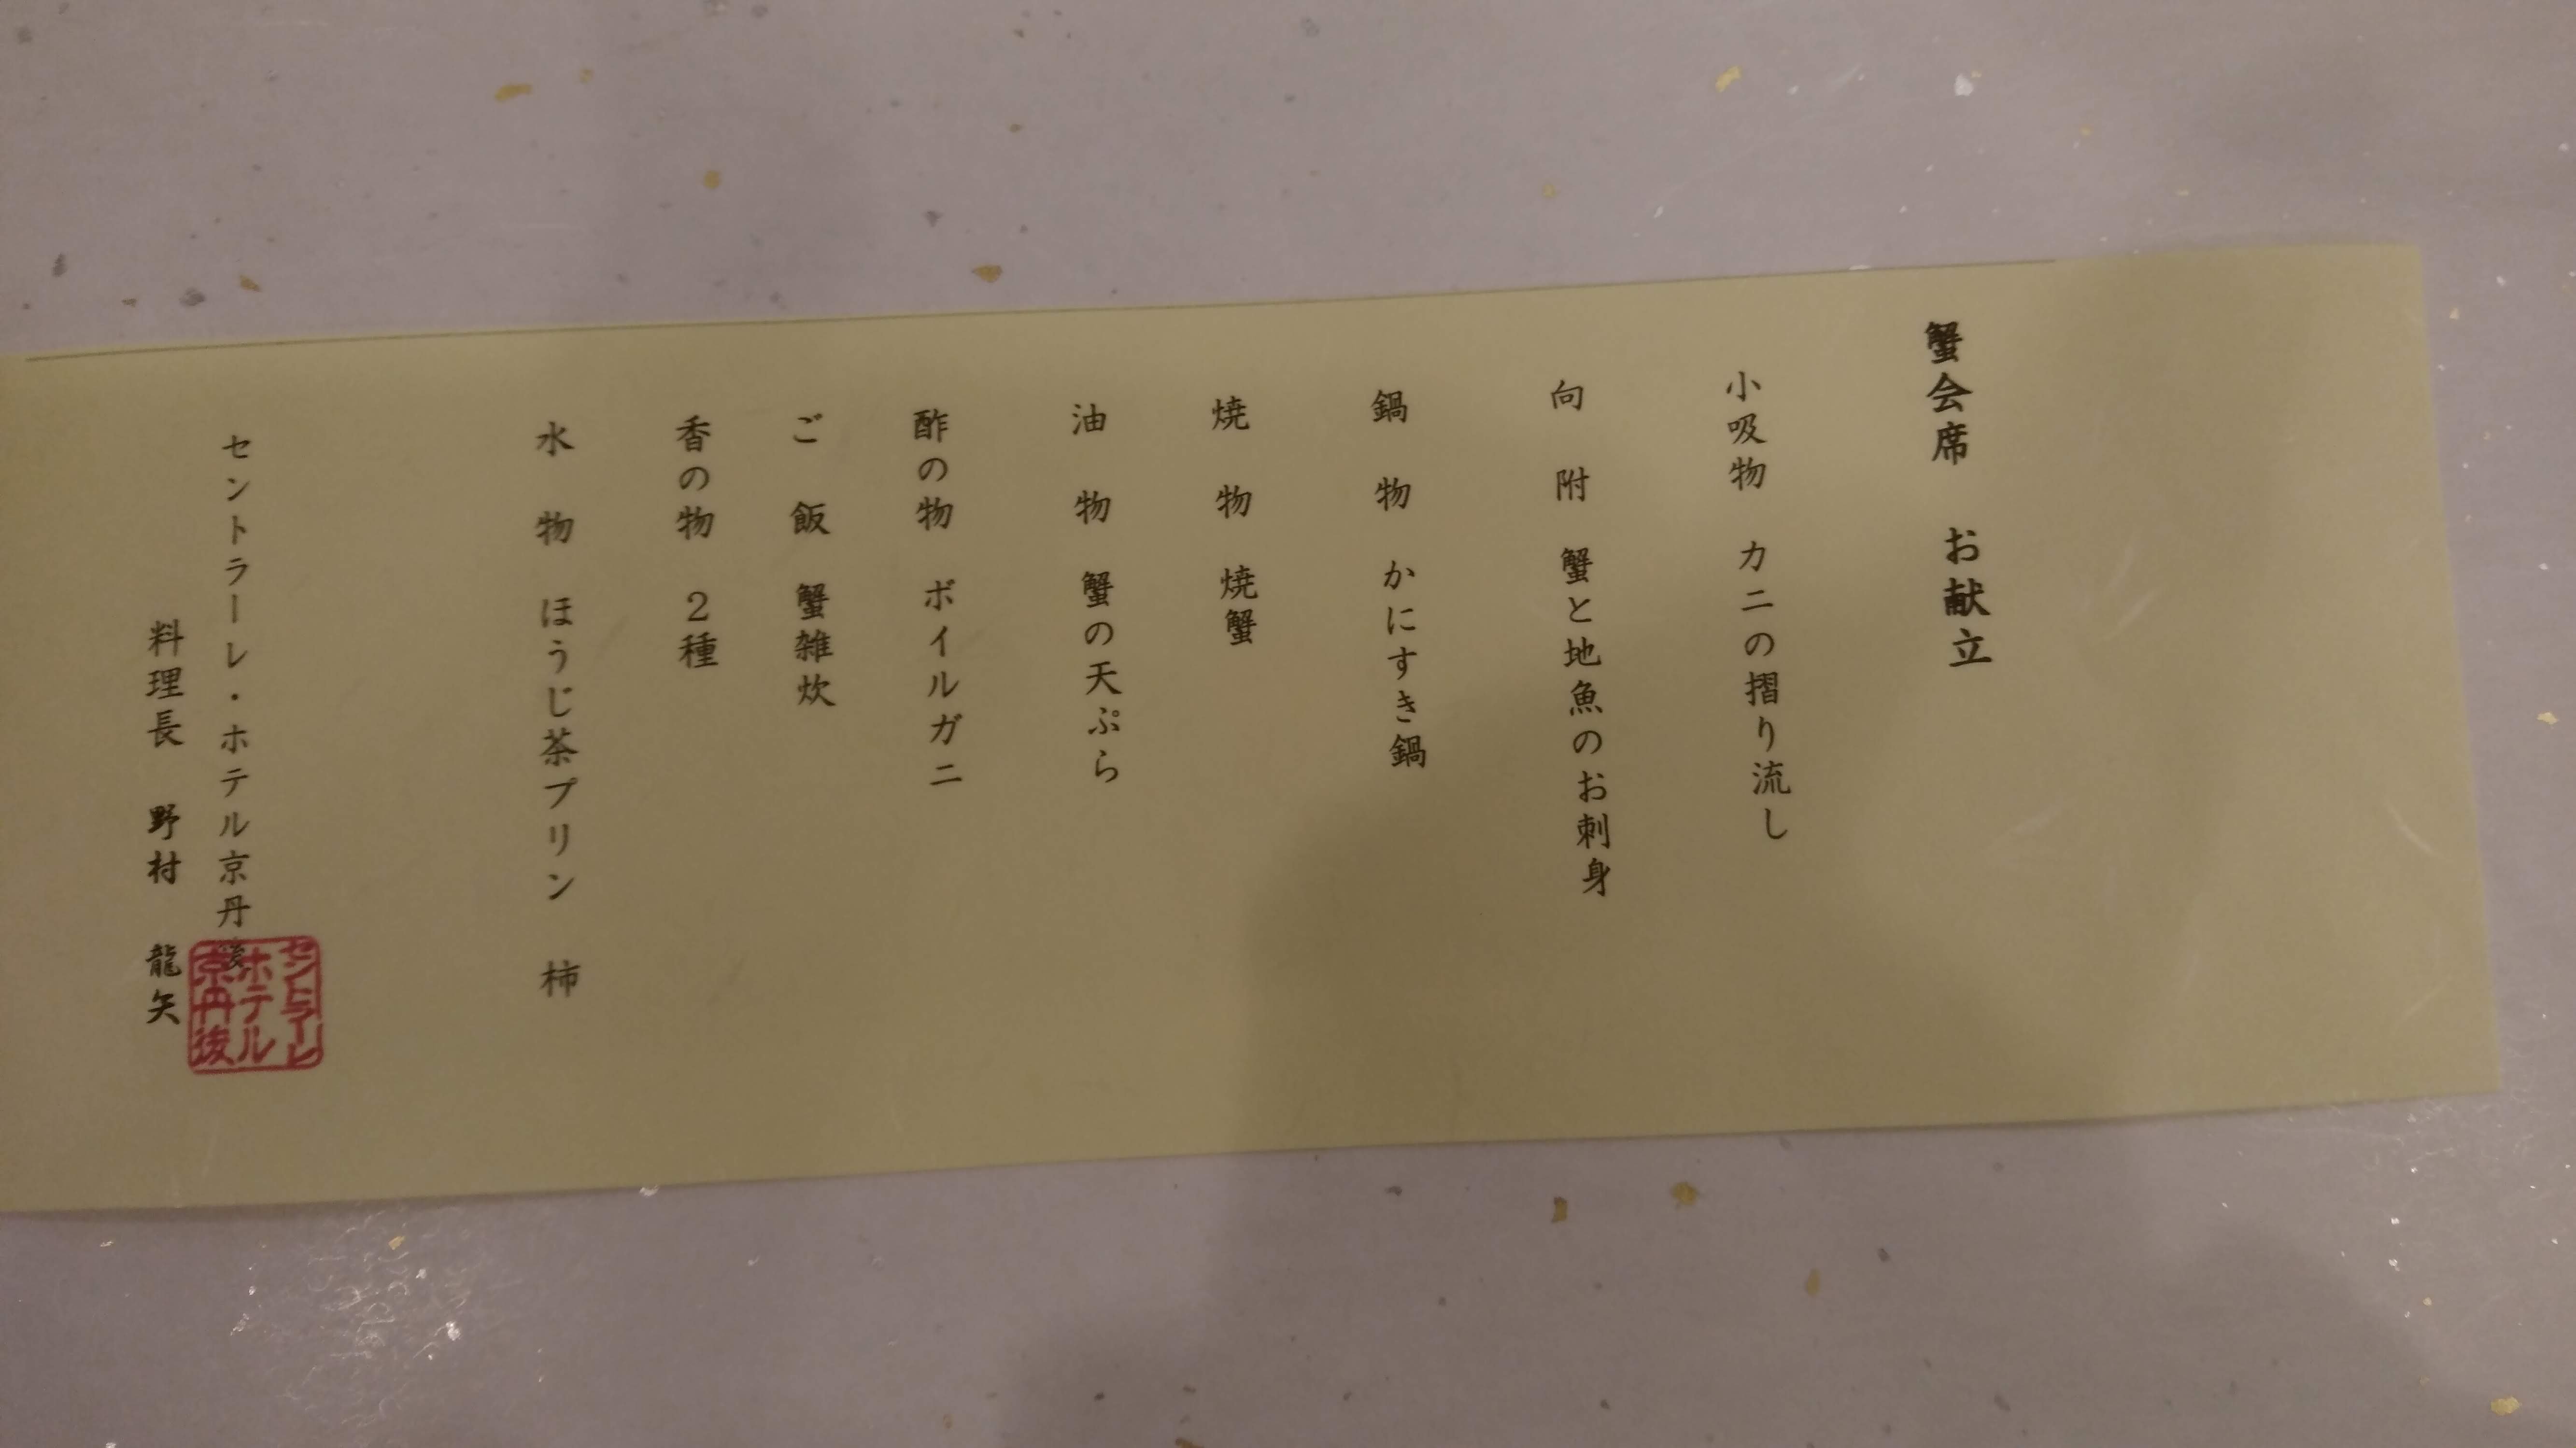 蟹会席 お献立
小吸物 カニの摺り流し
向附 蟹と地魚のお刺身
鍋物 かにすき鍋
焼物 焼蟹
油物 蟹の天ぷら
酢の物 ボイルガニ
ご飯 蟹雑炊
香の物 2種
水物 ほうじ茶プリン 柿
セントラーレ・ホテル京丹後
料理長 野村 龍矢
セントラーレ
ホテル
京丹後